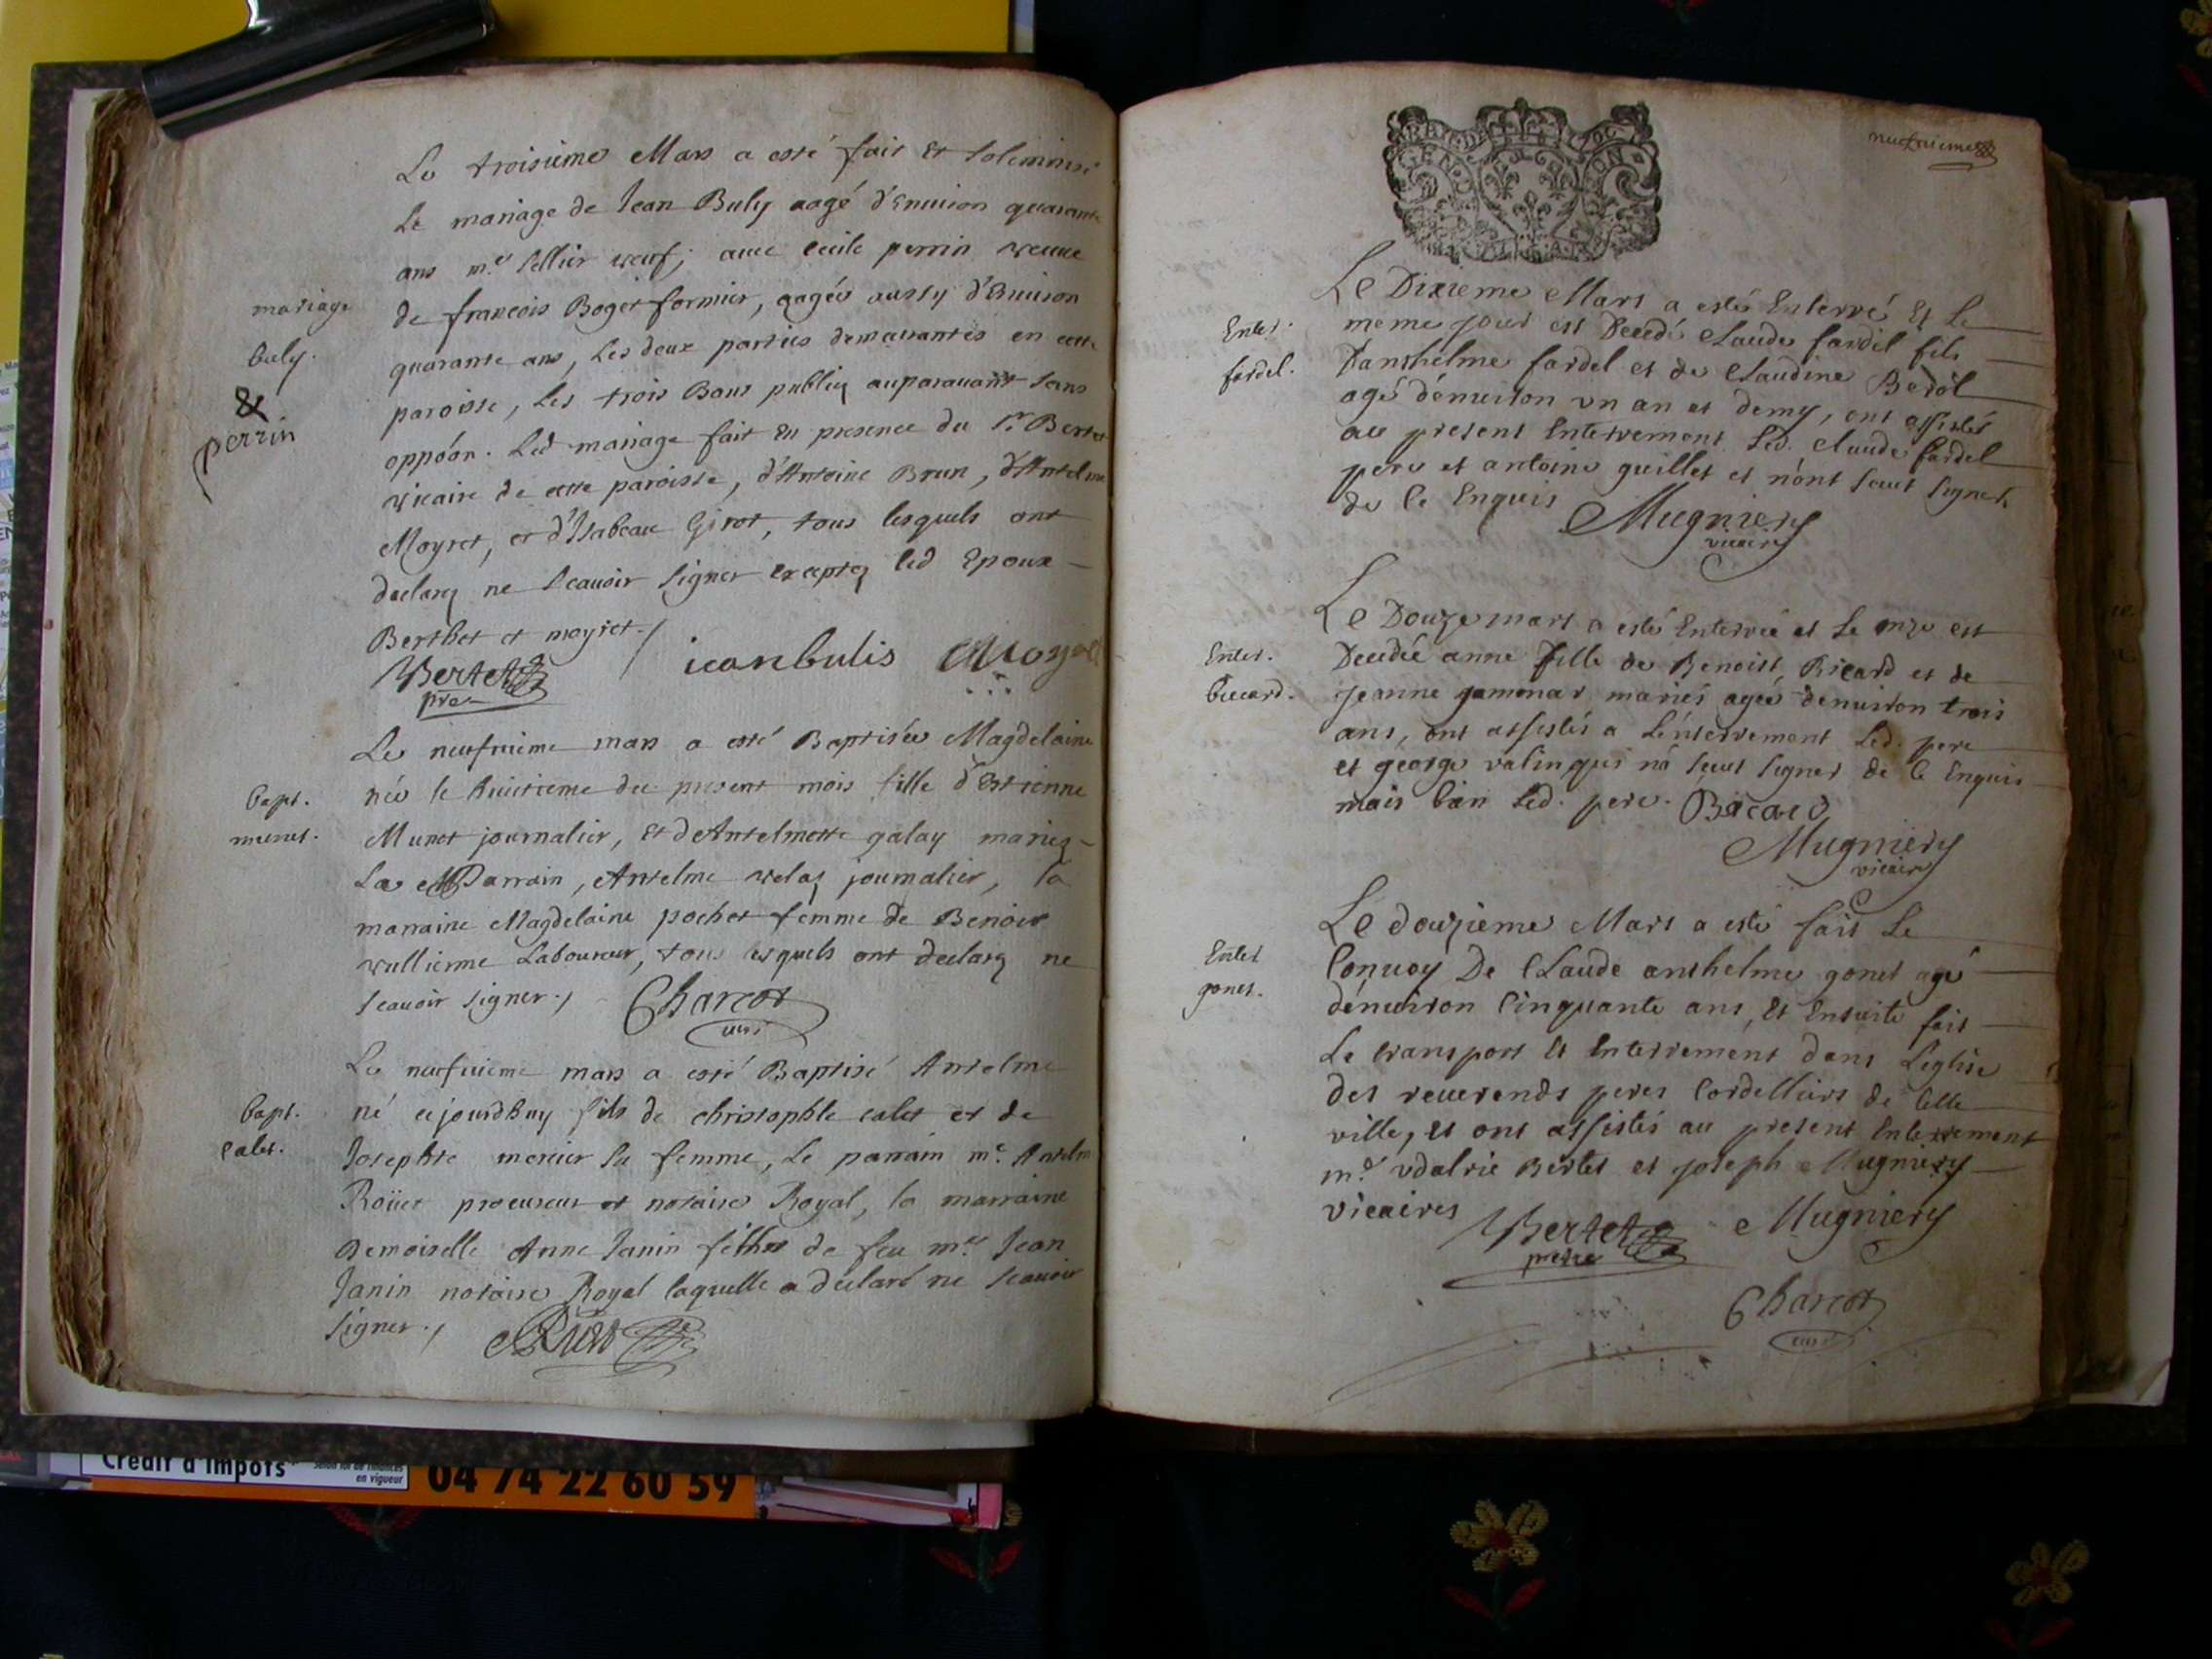 Le troisieme Mars a esté fait et solemnisé
Le mariage de Jean Buly aagé d'Enuiron quarante
ans m.e sellier veuf, auec cecile perrin veuue
mariage
buly.
&
perrin
de francois Boget fermier, aagée aussy d'Enuiron
quarante ans, Les deux parties demeurantes en cette
paroisse, Les trois Bans publiez auparauant sans
oppoõn. Led mariage fait en presence du Sr. Bertet
vicaire de cette paroisse, d'Antoine Brun, d'Antelme
Moyret, et d'Isabeau Girot, tous lesquels ont
declarez ne scauoir signer exceptez led Epoux
Berthet et moyret./
Bertet
pre
jeanbulis Moyret
Le neufuieme mars a esté Baptisée Magdelaine
bapt.
munet.
née le huitieme du present mois fille d'Estienne
Munet journalier, Et d'Antelmette galay mariez
La Parrain, Antelme velaz journalier, la
marraine Magdelaine pochet femme de Benoist
vullierme Laboureur, tous lesquels ont declarez ne
scauoir signer./
Charcot
curé
Le neufuieme mars a esté Baptisé Antelme
bapt.
calet.
né cejourdhuy fils de christophle calet et de
Josephte mercier sa femme, Le parrain me. Antelme
Roüet procureur et notaire Royal, la marraine
Demoiselle Anne Janin fille de feu me. Jean
Janin notaire Royal laquelle a declaré ne scauoir
signer./
neufuieme
GEN
Le Dixieme Mars a estés Enterré Et Le
Enter.
fardel.
meme jour est Decedé Claude fardel fils
Danthelme fardel et de Claudine Bedol
agé d'enuiron un an et demy, ont assistés
au present Enterrement Led. Claude fardel
pere et antoine guillet et n'ont sceut signer
de ce Enquis
Mugniery
vicaire
Le Douze mars a esté Enterrée et Le onze est
Enter.
biccard.
Decedée anne fille de Benoist Bicard et de
jeanne gamonar mariés agée denuiron trois
ans, ont assistés a L'enterrement Led. pere
et george valin qui n'a sceut signer de ce Enquis
mais bien Led. pere. Bicard
Mugniery
vicaire
Le douzieme Mars a esté fait Le
Enter
gonet.
Conuoy De Claude anthelme gonet agé
d'enuiron Cinquante ans, Et Ensuite fait
Le transport Et Enterrement dans L'eglise
des reuerends peres Cordelliers de Cette
ville, et ont assistés au present Enterrement
mre. vdalric Bertet et joseph Mugniery
vicaires
Bertet
prestre
Mugniery
Charcot
curé
Crédit d'impôts
en vigueur
04 74 22 60 59